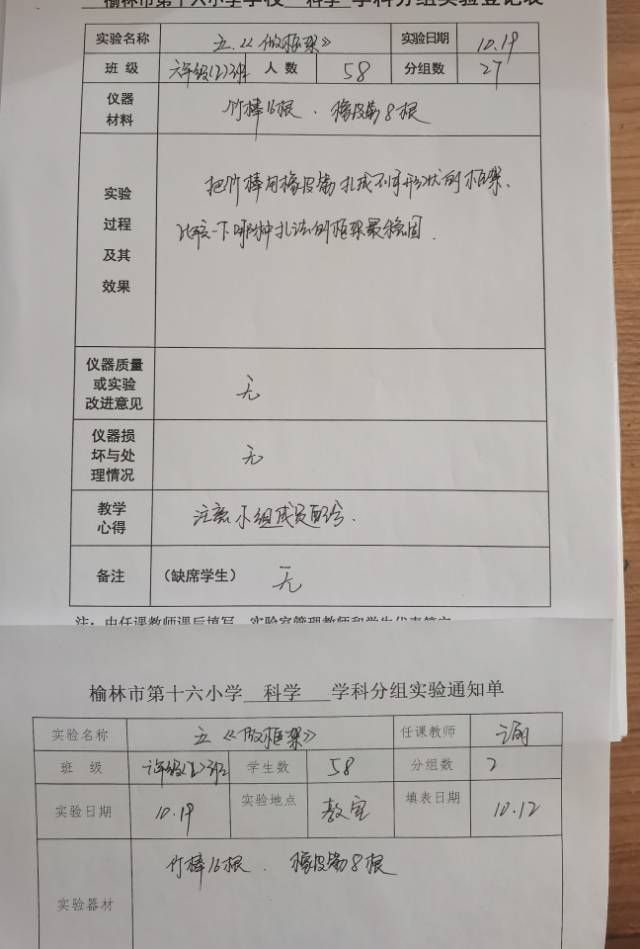 榆林市第十六小学学校 科学 学科分组实验登记表
实验名称 五.《做框架》 实验日期 10.19
班 级 六年级(2)班 人 数 58 分组数 27
仪器材料 竹棒16根、橡皮筋8根
实验过程及其效果
把竹棒用橡皮筋扎成不同形状的框架、
比较一下哪种扎法的框架最稳固.
仪器质量或实验改进意见 无
仪器损坏与处理情况 无
教学心得 注意小组成员配合.
备注 (缺席学生) 无
注:由任课教师课后填写,实验室管理教师和学生代表签字
榆林市第十六小学 科学 学科分组实验通知单
实验名称 五《做框架》 任课教师
班 级 六年级(2)班 学生数 58 分组数 2
实验日期 10.19 实验地点 教室 填表日期 10.12
实验器材 竹棒16根、橡皮筋8根